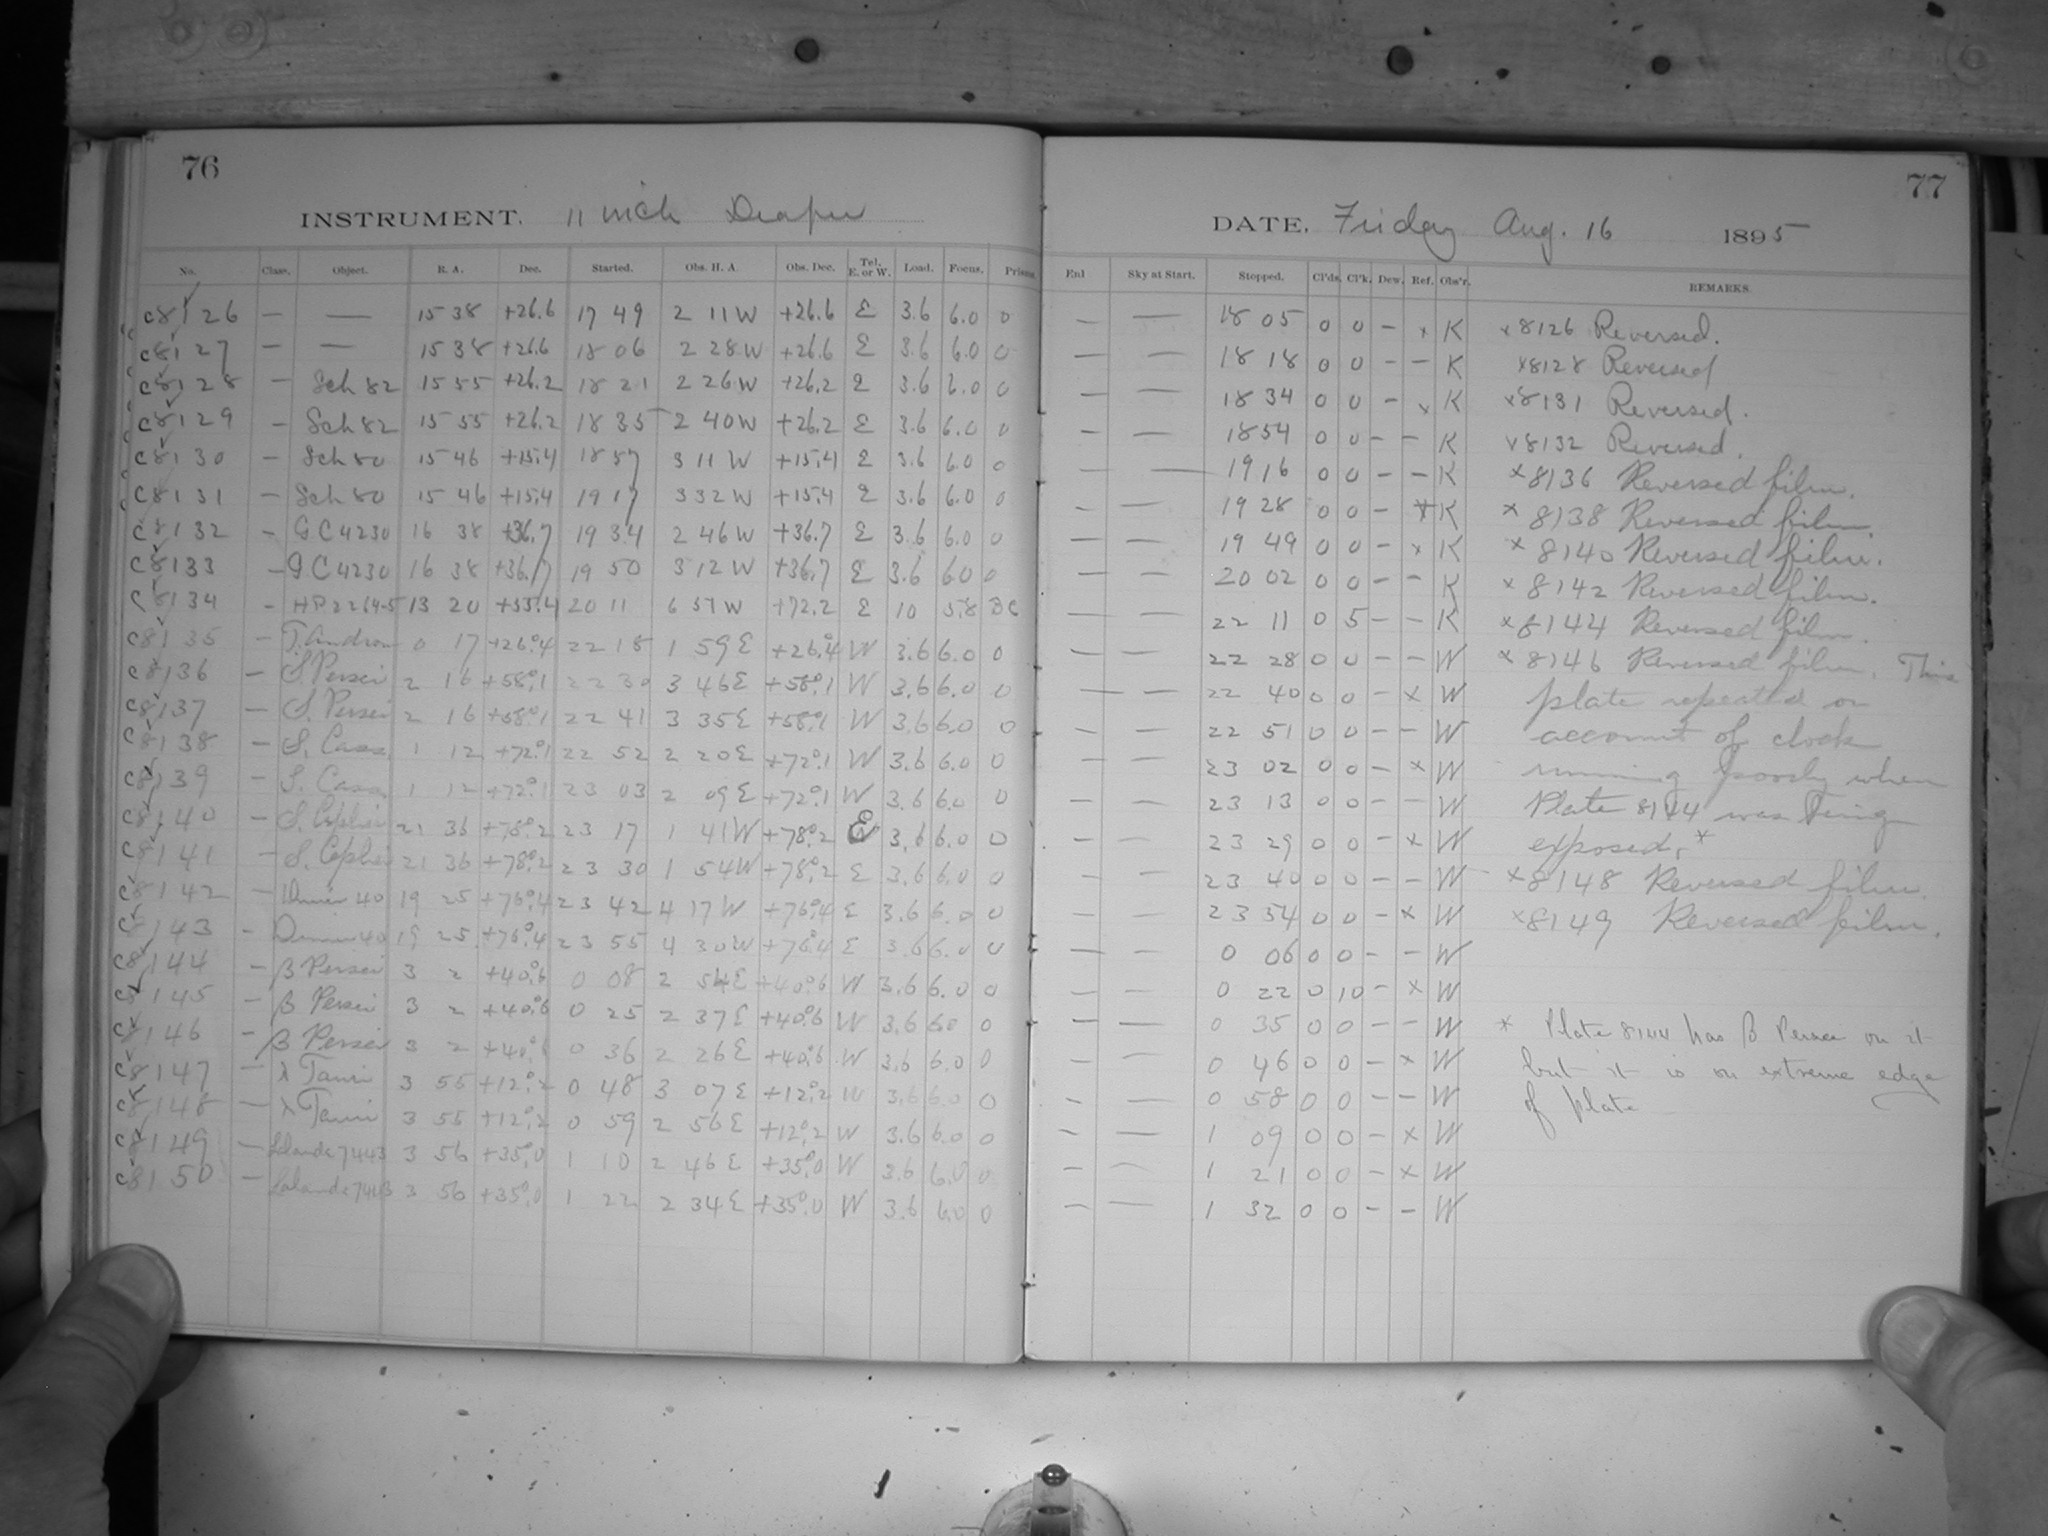 76
INSTRUMENT. 11 inch Draper
No. Class. Object. R. A. Dec. Started. Obs. H. A. Obs. Dec. Tel. E. or W. Load. Focus. Prisms.
c8126 — — 15 38 +26.6 17 49 2 11 W +26.6 E 3.6 6.0 0
c8127 — — 15 38 +26.6 18 06 2 28 W +26.6 E 3.6 6.0 0
c8128 — Sch 82 15 55 +26.2 18 21 2 26 W +26.2 E 3.6 6.0 0
c8129 — Sch 82 15 55 +26.2 18 35 2 40 W +26.2 E 3.6 6.0 0
c8130 — Sch 80 15 46 +15.4 18 57 3 11 W +15.4 E 3.6 6.0 0
c8131 — Sch 80 15 46 +15.4 19 17 3 32 W +15.4 E 3.6 6.0 0
c8132 — G C 4230 16 38 +36.7 19 34 2 46 W +36.7 E 3.6 6.0 0
c8133 — G C 4230 16 38 +36.7 19 50 3 12 W +36.7 E 3.6 6.0 0
c8134 — HP 2264-5 13 20 +55.4 20 11 6 57 W +72.2 E 10 5.8 BC
c8135 — T. Androm 0 17 +26°.4 22 18 1 59 E +26°.4 W 3.6 6.0 0
c8136 — S. Persei 2 16 +58°.1 22 30 3 46 E +58°.1 W 3.6 6.0 0
c8137 — S. Persei 2 16 +58°.1 22 41 3 35 E +58°.1 W 3.6 6.0 0
c8138 — S. Cass. 1 12 +72°.1 22 52 2 20 E +72°.1 W 3.6 6.0 0
c8139 — S. Cass. 1 12 +72°.1 23 03 2 09 E +72°.1 W 3.6 6.0 0
c8140 — S. Cephei 21 36 +78°.2 23 17 1 41 W +78°.2 E 3.6 6.0 0
c8141 — S. Cephei 21 36 +78°.2 23 30 1 54 W +78°.2 E 3.6 6.0 0
c8142 — Dunér 40 19 25 +76°.4 23 42 4 17 W +76°.4 E 3.6 6.0 0
c8143 — Dunér 40 19 25 +76°.4 23 55 4 30 W +76°.4 E 3.6 6.0 0
c8144 — β Persei 3 2 +40°.6 0 08 2 54 E +40°.6 W 3.6 6.0 0
c8145 — β Persei 3 2 +40°.6 0 25 2 37 E +40°.6 W 3.6 6.0 0
c8146 — β Persei 3 2 +40°.6 0 36 2 26 E +40°.6 W 3.6 6.0 0
c8147 — λ Tauri 3 55 +12°.2 0 48 3 07 E +12°.2 W 3.6 6.0 0
c8148 — λ Tauri 3 55 +12°.2 0 59 2 56 E +12°.2 W 3.6 6.0 0
c8149 — Lalande 7443 3 56 +35°.0 1 10 2 46 E +35°.0 W 3.6 6.0 0
c8150 — Lalande 7443 3 56 +35°.0 1 22 2 34 E +35°.0 W 3.6 6.0 0
77
DATE. Friday Aug. 16 1895
Enl Sky at Start. Stopped. Cl'ds. Cl'k. Dew. Ref. Obs'r. REMARKS.
— — 18 05 0 0 – x K x8126 Reversed.
— — 18 18 0 0 – – K x8128 Reversed
— — 18 34 0 0 – x K x8131 Reversed.
— — 18 54 0 0 – – K x8132 Reversed.
— — 19 16 0 0 – – K x8136 Reversed film.
— — 19 28 0 0 – x K x 8138 Reversed film.
— — 19 49 0 0 – x K x 8140 Reversed film.
— — 20 02 0 0 – – K x 8142 Reversed film.
— — 22 11 0 5 – – K x8144 Reversed film.
— — 22 28 0 0 – – W x8146 Reversed film. This
— — 22 40 0 0 – x W plate repeated on
— — 22 51 0 0 – – W account of clock
— — 23 02 0 0 – x W running poorly when
— — 23 13 0 0 – – W Plate 8144 was being
— — 23 29 0 0 – x W exposed.*
— — 23 40 0 0 – – W x8148 Reversed film.
— — 23 54 0 0 – x W x8149 Reversed film.
— — 0 06 0 0 – – W
— — 0 22 0 10 – x W
— — 0 35 0 0 – – W * Plate 8144 has β Persei on it
— — 0 46 0 0 – x W but it is on extreme edge
— — 0 58 0 0 – – W of plate
— — 1 09 0 0 – x W
— — 1 21 0 0 – x W
— — 1 32 0 0 – – W